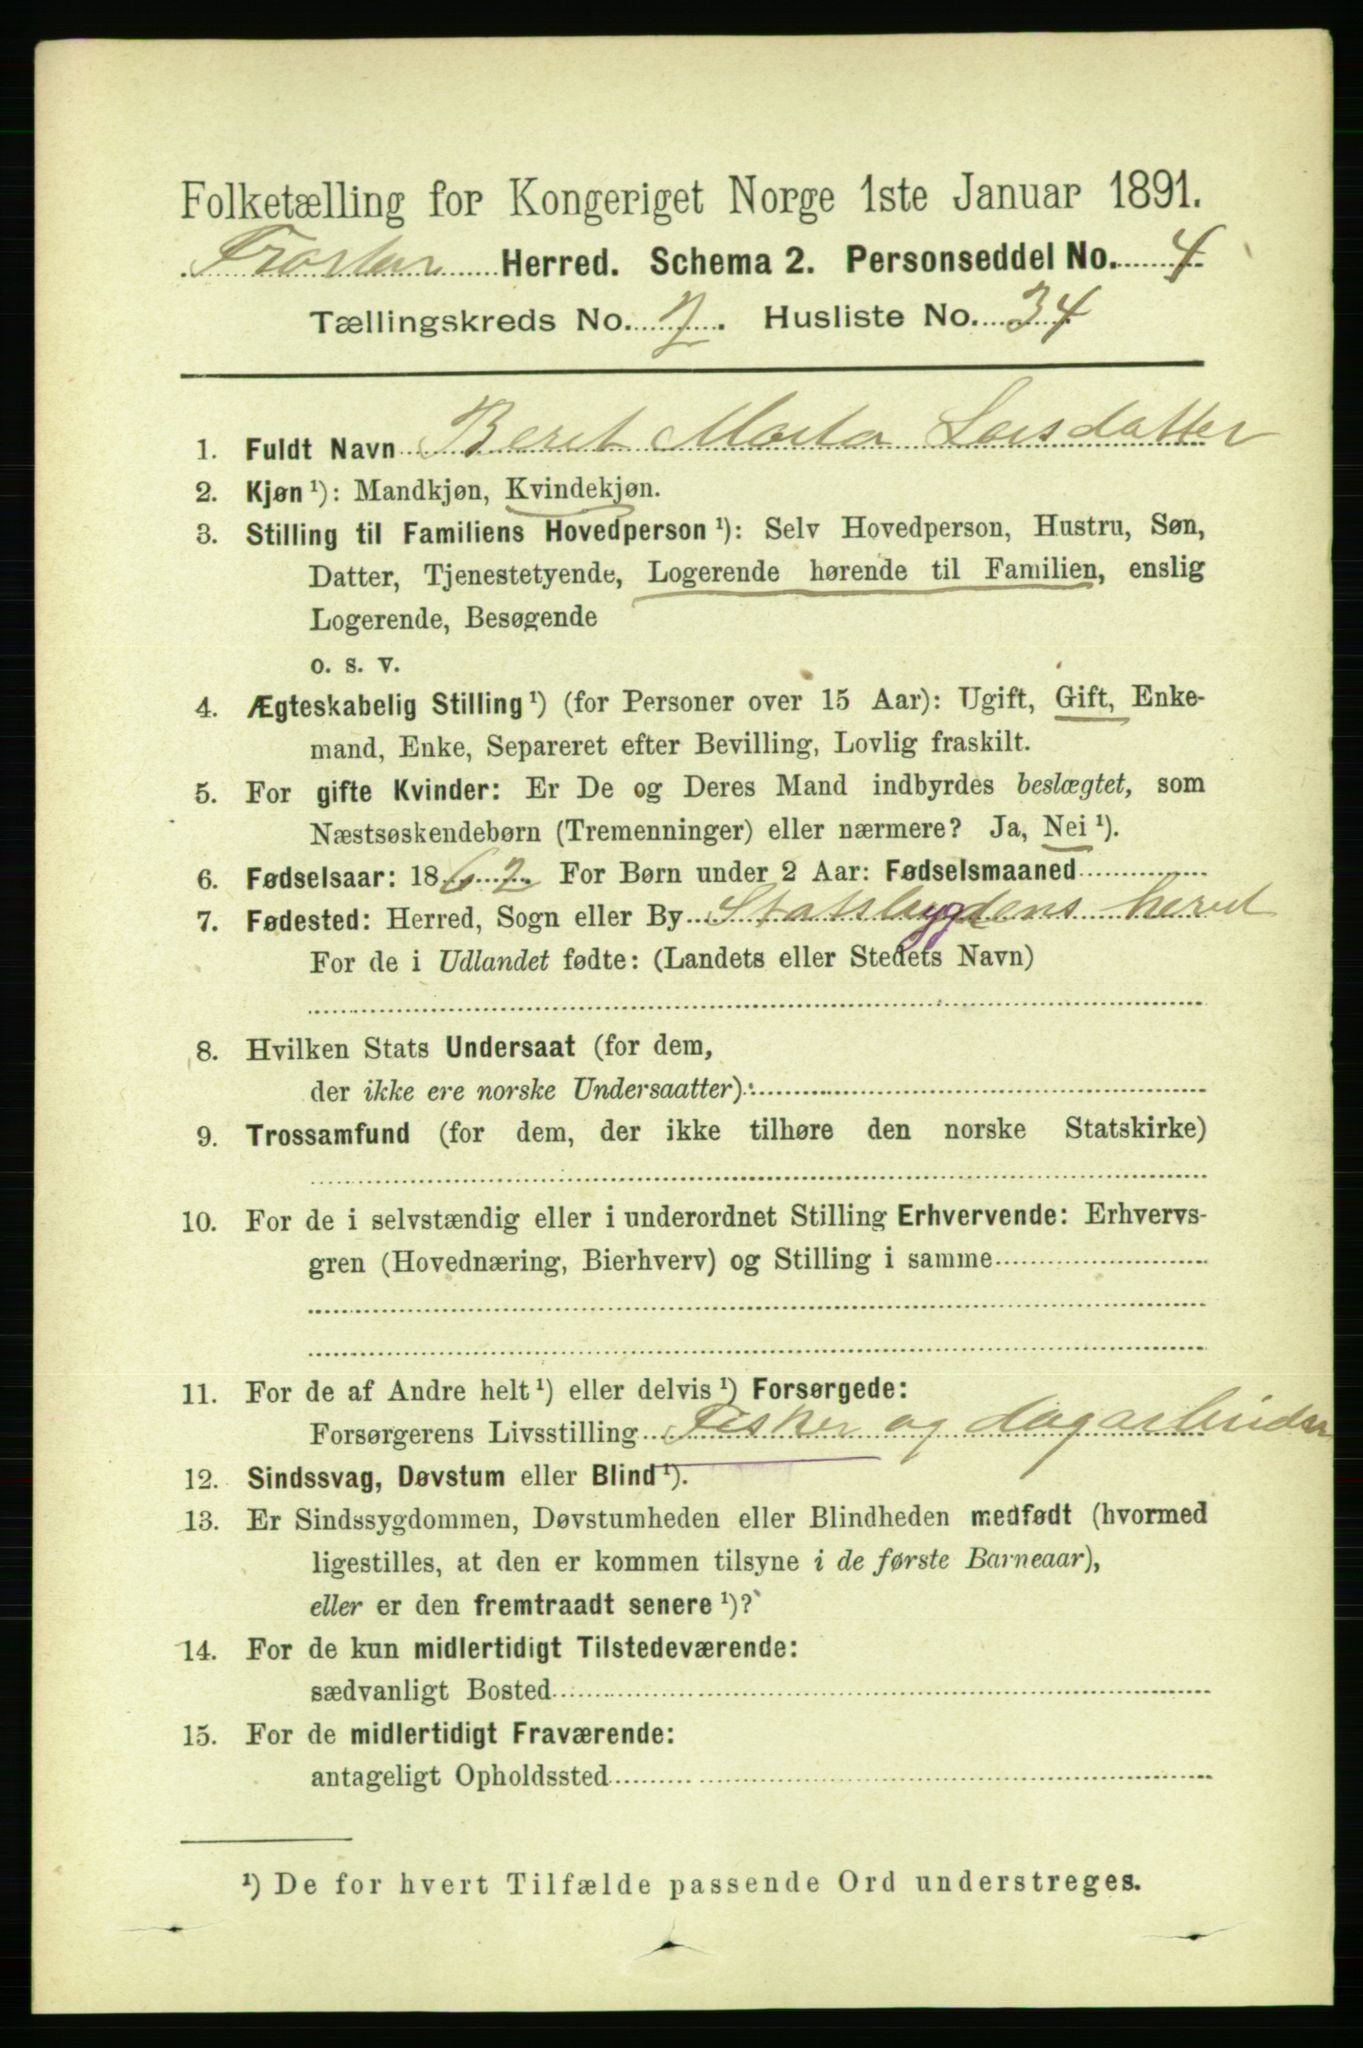 Folketælling for Kongeriget Norge 1ste Januar 1891.
Frosten Herred. Schema 2. Personseddel No. 4
Tællingskreds No. 7. Husliste No. 34
1. Fuldt Navn Beret Marta Larsdatter
2. Kjøn¹): Mandkjøn, Kvindekjøn.
3. Stilling til Familiens Hovedperson¹): Selv Hovedperson, Hustru, Søn,
Datter, Tjenestetyende, Logerende hørende til Familien, enslig
Logerende, Besøgende
o. s. v.
4. Ægteskabelig Stilling¹) (for Personer over 15 Aar): Ugift, Gift, Enke-
mand, Enke, Separeret efter Bevilling, Lovlig fraskilt.
5. For gifte Kvinder: Er De og Deres Mand indbyrdes beslægtet, som
Næstsøskendebørn (Tremenninger) eller nærmere? Ja, Nei¹).
6. Fødselsaar: 1862 For Børn under 2 Aar: Fødselsmaaned
7. Fødested: Herred, Sogn eller By Statsbygdens herred
For de i Udlandet fødte: (Landets eller Stedets Navn)
8. Hvilken Stats Undersaat (for dem,
der ikke ere norske Undersaatter):
9. Trossamfund (for dem, der ikke tilhøre den norske Statskirke)
10. For de i selvstændig eller i underordnet Stilling Erhvervende: Erhvervs-
gren (Hovednæring, Bierhverv) og Stilling i samme
11. For de af Andre helt¹) eller delvis¹) Forsørgede:
Forsørgerens Livsstilling Fisker og dagarbeider
12. Sindssvag, Døvstum eller Blind¹).
13. Er Sindssygdommen, Døvstumheden eller Blindheden medfødt (hvormed
ligestilles, at den er kommen tilsyne i de første Barneaar),
eller er den fremtraadt senere¹)?
14. For de kun midlertidigt Tilstedeværende:
sædvanligt Bosted
15. For de midlertidigt Fraværende:
antageligt Opholdssted
¹) De for hvert Tilfælde passende Ord understreges.